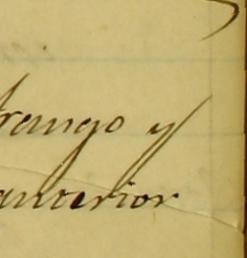 rango y
anterior